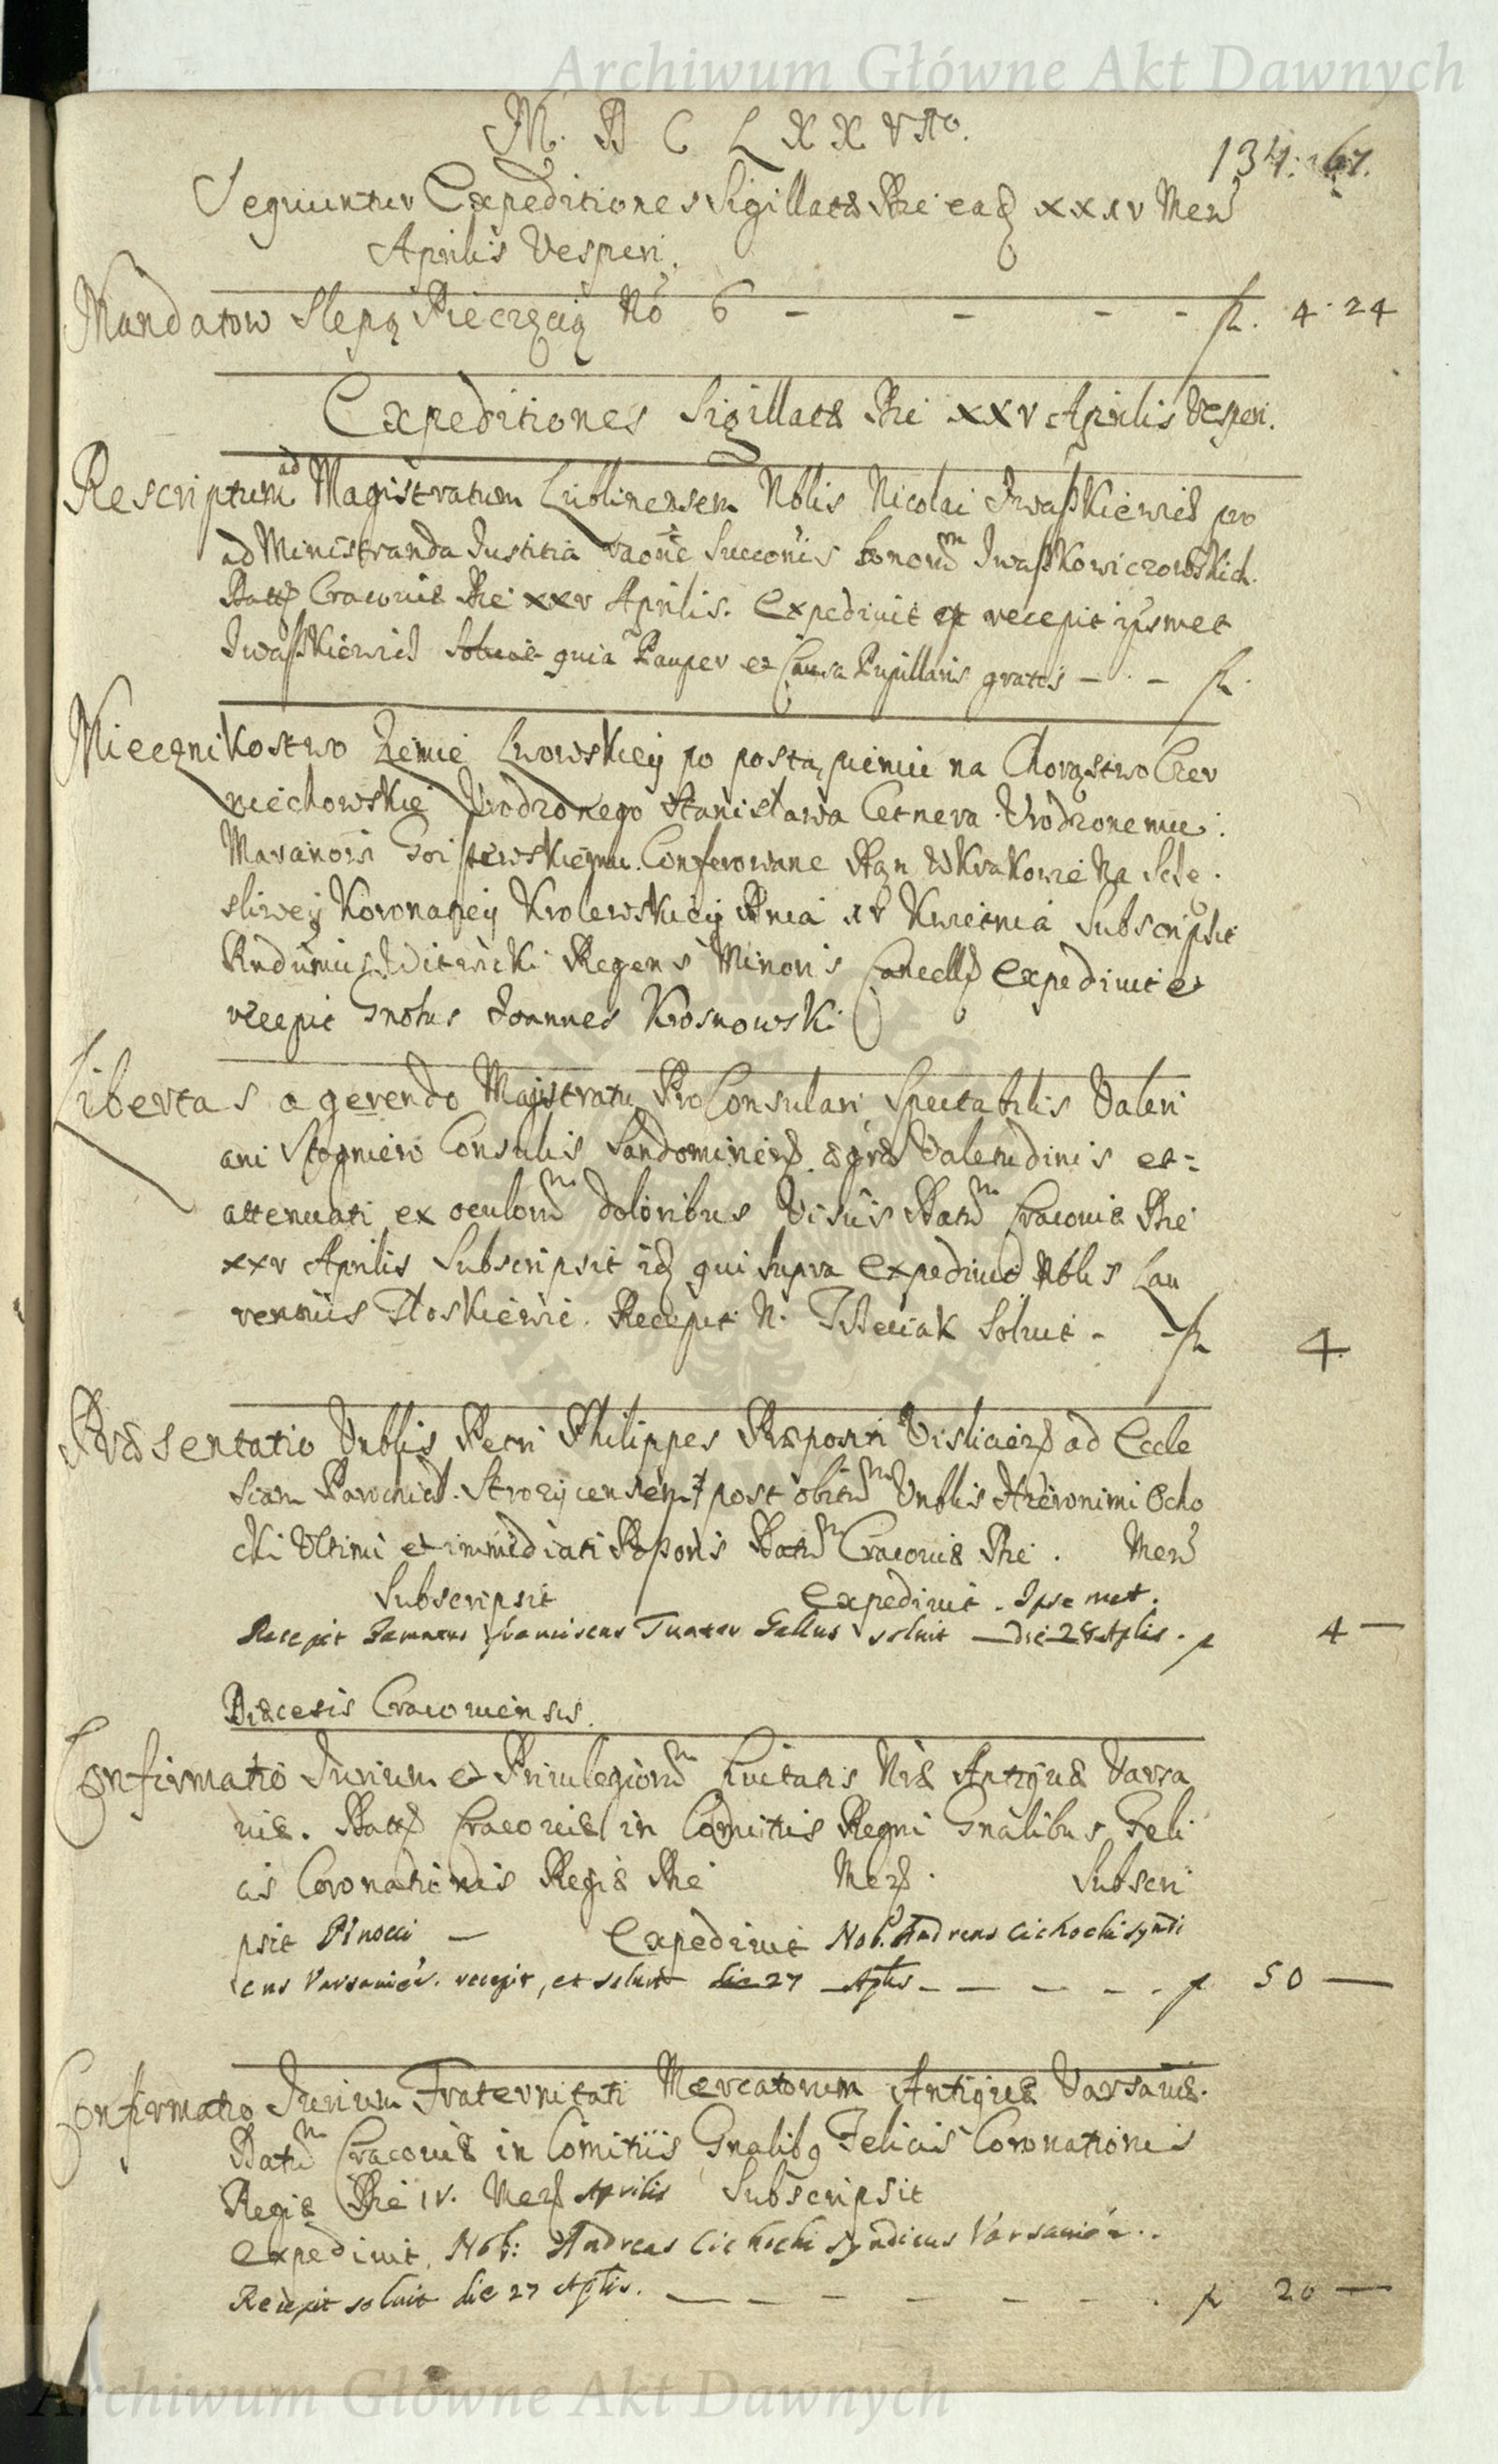 Archiwum Główne Akt Dawnych
M. D C L X X VIto.
134. 67.
Sequuntur Expeditiones Sigillatæ Die eadem xxv Mens
Aprilis Vesperi.
Mandatow Slepą Pieczęcią No 6 - - - - fl. 4. 24
Expeditiones Sigillatæ Die XXV Aprilis Vesperi.
Rescriptum ad Magistratum Lublinensem Nblis Nicolai Iwaszkiewicz pro
administranda Iustitia raone Succonis bonorum Iwaszkowiczowskich.
Datt Cracoviæ Die xxv Aprilis. Expedivit et recepit ipsmet
Iwaszkiewicz quia Pauper et Causa Pupillaris gratis - - fl.
Miecznikostwo Ziemie Lwowskiey po postąpieniu na Chorąstwo Czer
niechowskie Vrodzonego Stanisława Cetnera Vrodzonemu
Maranowi Conferowane Dan w Krakowie Na Scze
sliwey Koronacyey Krolewskiey Dnia xv Kwietnia Subscripsit
Rndmus Witwicki Regens Minoris Cancell Expedivit et
recepit Gnosus Joannes Krosnowski
Libertas a gerendo Magistratu ProConsulari Spectabilis Valeri
ani Consulis Sandomirien ægræ Valetudinis et
attenuati ex oculorum doloribus Visus Datum Cracoviæ Die
xxv Aprilis Subscripsit id qui supra Expedivit Nblis Lau
rentius Recepit N. Solvit - - fl 4
Præsentatio Vnblis Petri Philippes Præpositi Vislicien ad Eccle
siam Parochial. post obitum Vnblis Hieronimi Ocho
cki Vltimi et immediati Pposris Datum Cracoviæ Die . Mens
Subscripsit Expedivit. Ipse met.
Recepit Franciscus Gallus solvit - die 28 Aplis. f 4 —
Diæcesis Cracoviensis.
Confirmatio Jurium et Privilegiorum Civitatis Nræ Antiquæ Varsa
viæ. Datt Cracoviæ in Comitiis Regni Gnalibus Feli
cis Coronationis Regiæ Die Mens. Subscri
psit Pinocci — Expedivit Nob. Andreas Cichocki syndi
cus Varsavien. recepit, et solvit die 27 Aplis - - - - f 50 —
Confirmatio Jurium Fraternitati Mercatorum Antiquæ Varsaviæ.
Datum Cracoviæ in Comitiis Gnalibq Felicis Coronationis
Regiæ Die IV. Mens Aprilis Subscripsit
Expedivit Nob: Andreas Cichocki syndicus Varsavien..
Recepit solvit die 27 Aplis. — - - - - - . f 20 —
Archiwum Główne Akt Dawnych